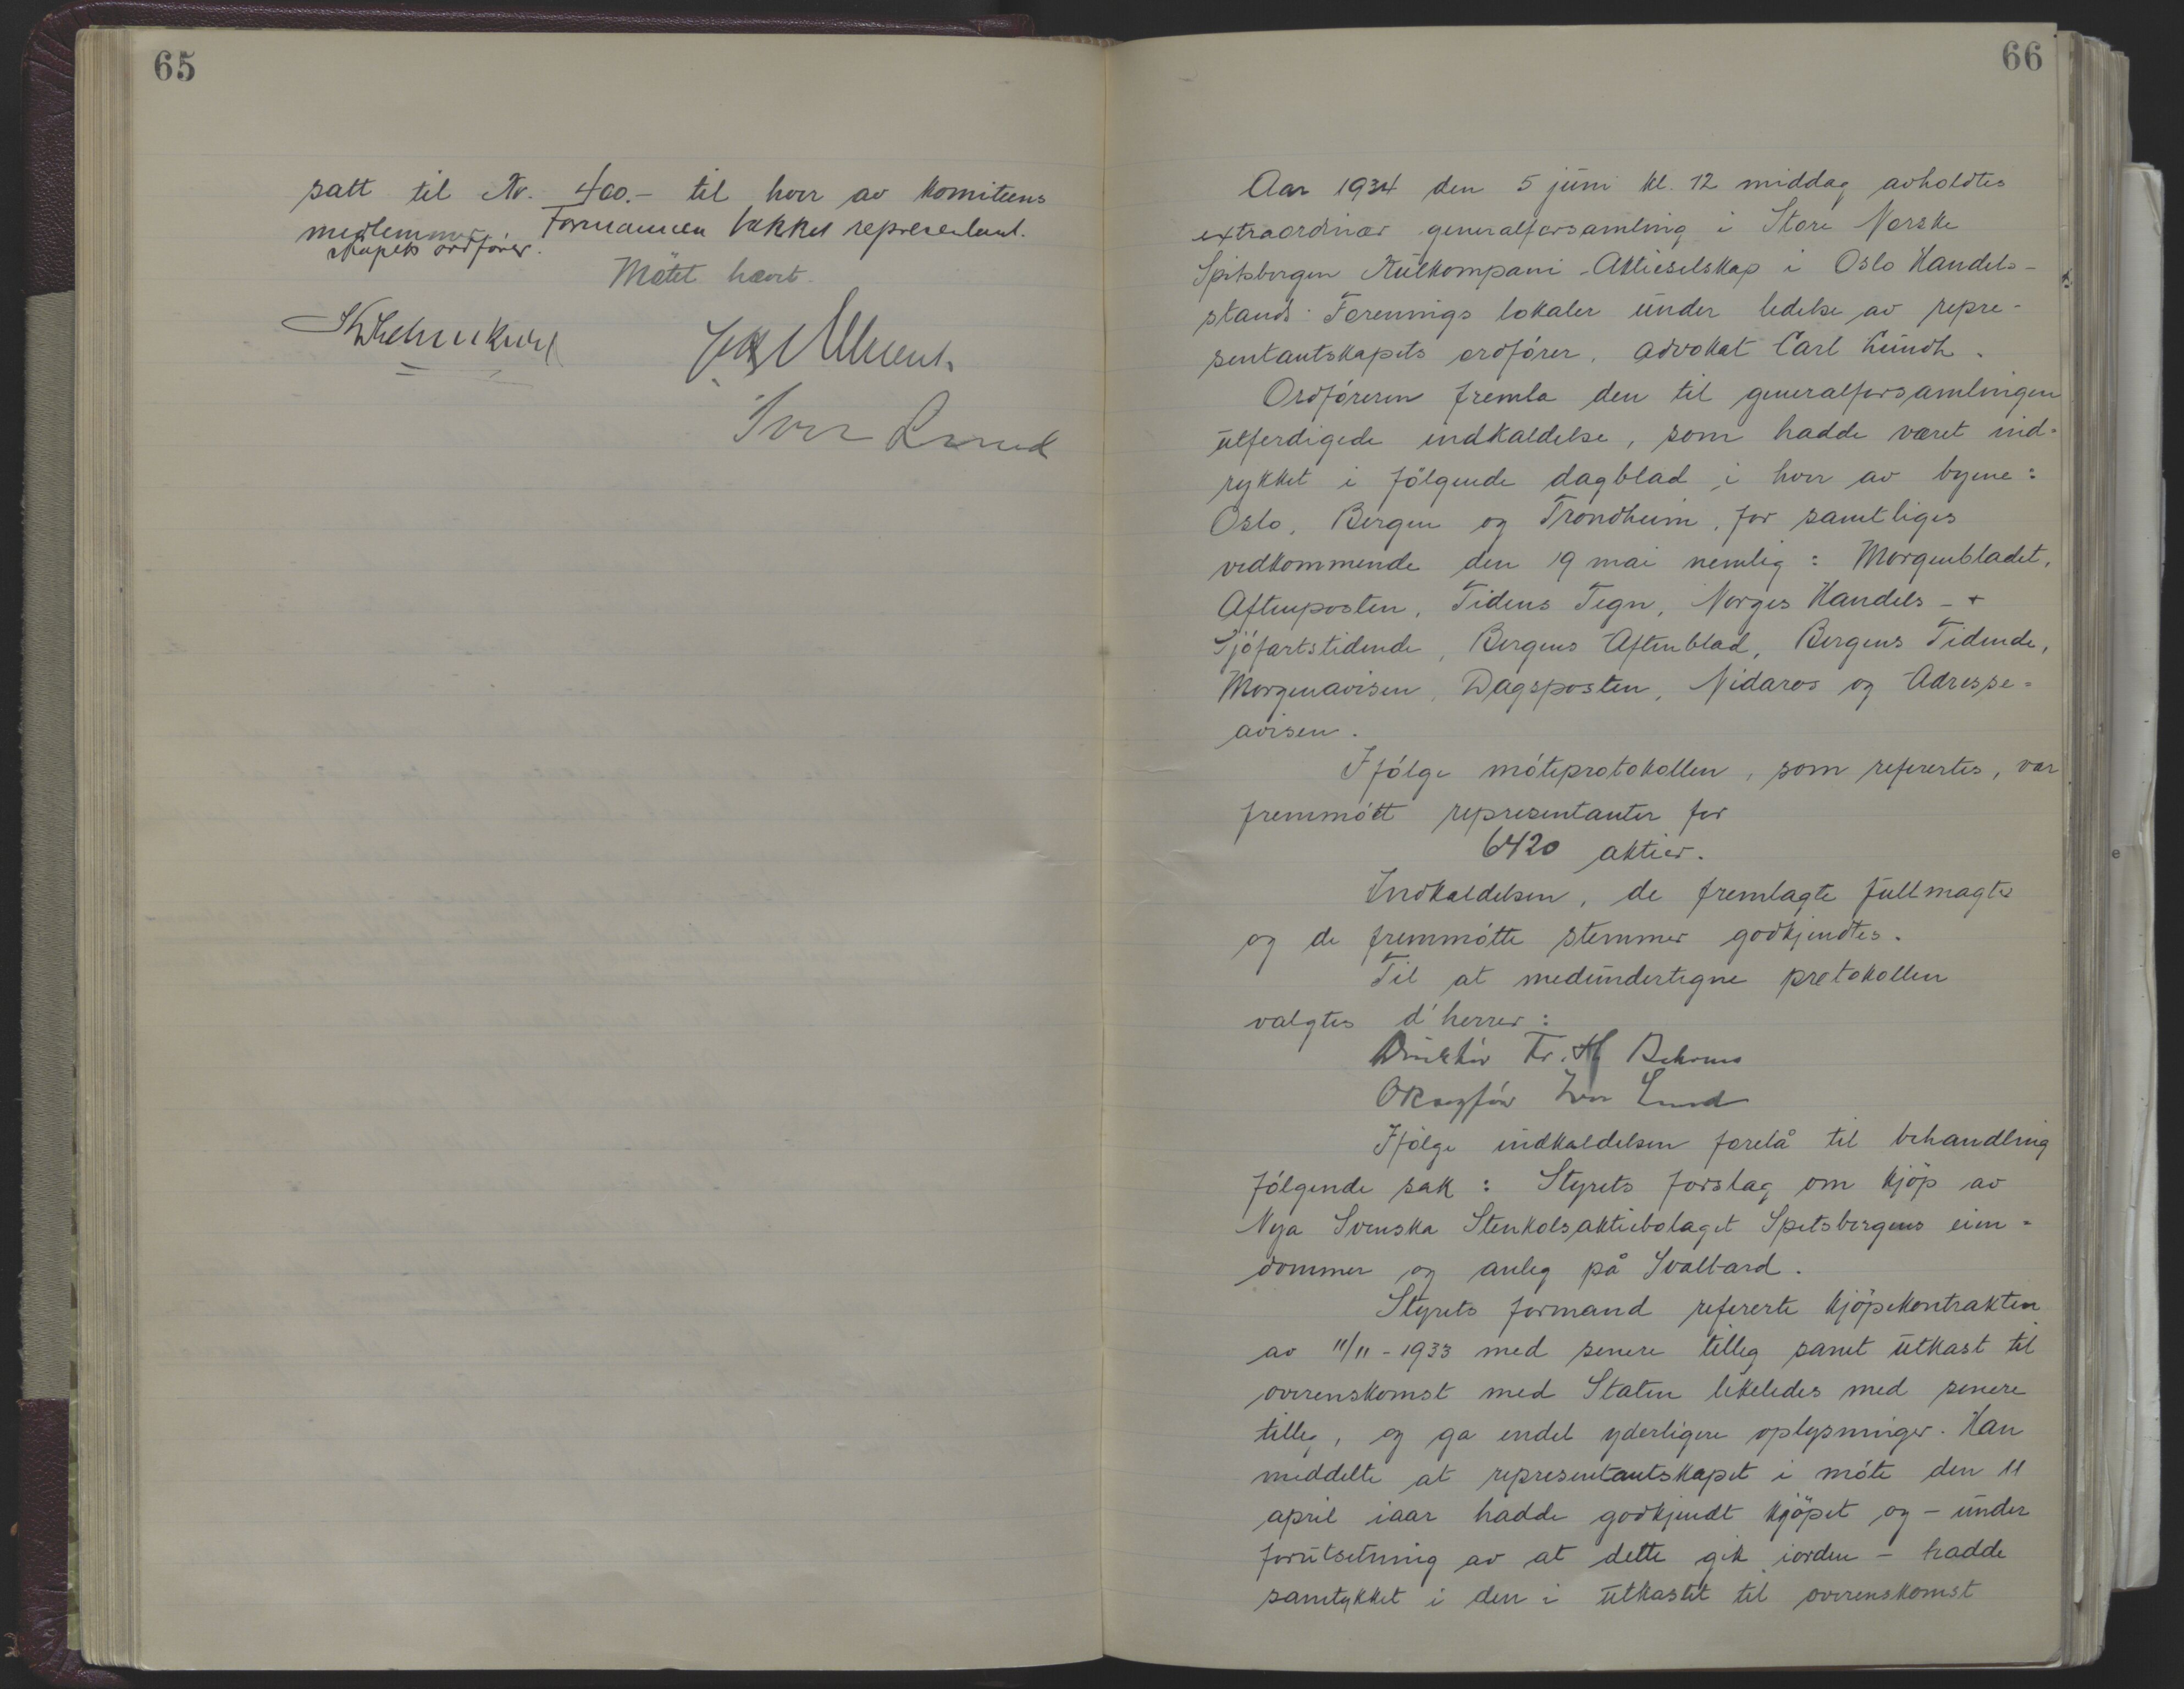 65
satt til Kr. 400.- til hver av komiteens
medlemmer. Formannen takket representant-
skapets ordfører.
Møtet hævet.
Iver Lund
66
Aar 1934 den 5 juni kl. 12 middag avholdtes
extraordinær generalforsamling i Store Norske
Spitsbergen Kulkompani - Aktieselskap i Oslo Handels-
stands Forenings lokaler under ledelse av repre-
sentantskapets ordfører, advokat Carl Lundh.
Ordføreren fremla den til generalforsamlingen
utferdigede indkaldelse, som hadde været ind-
rykket i følgende dagblad i hver av byene:
Oslo, Bergen og Trondheim, for samtliges
vedkommende den 19 mai nemlig: Morgenbladet,
Aftenposten, Tidens Tegn, Norges Handels - +
Sjøfartstidende, Bergens Aftenblad, Bergens Tidende,
Morgenavisen, Dagsposten, Nidaros og Adresse-
avisen.
Ifølge møteprotokollen, som refertes, var
fremmøtt representanter for
6420 aktier.
Indkaldelsen, de fremlagte fullmagter
og de fremmøtte stemmer godkjendtes.
Til at medundertegne protokollen
valgtes d'herrer:
Direktør Fr. Behrens
Oksagfør Iver Lund
Ifølge indkaldelsen forelå til behandling
følgende sak: Styrets forslag om kjøp av
Nya Svenska Stenkolsaktiebolaget Spetsbergens eien-
dommer og anleg på Svalbard.
Styrets formand refererte kjøpekontrakten
av 11/11-1933 med senere tilleg samt utkast til
overenskomst med Staten likeledes med senere
tilleg, og ga endel yderligere oplysninger. Han
meddelte at representantskapet i møte den 11
april iaar hadde godkjendt kjøpet og - under
forutsetning av at dette gik iorden - hadde
samtykket i den i utkastet til overenskomst